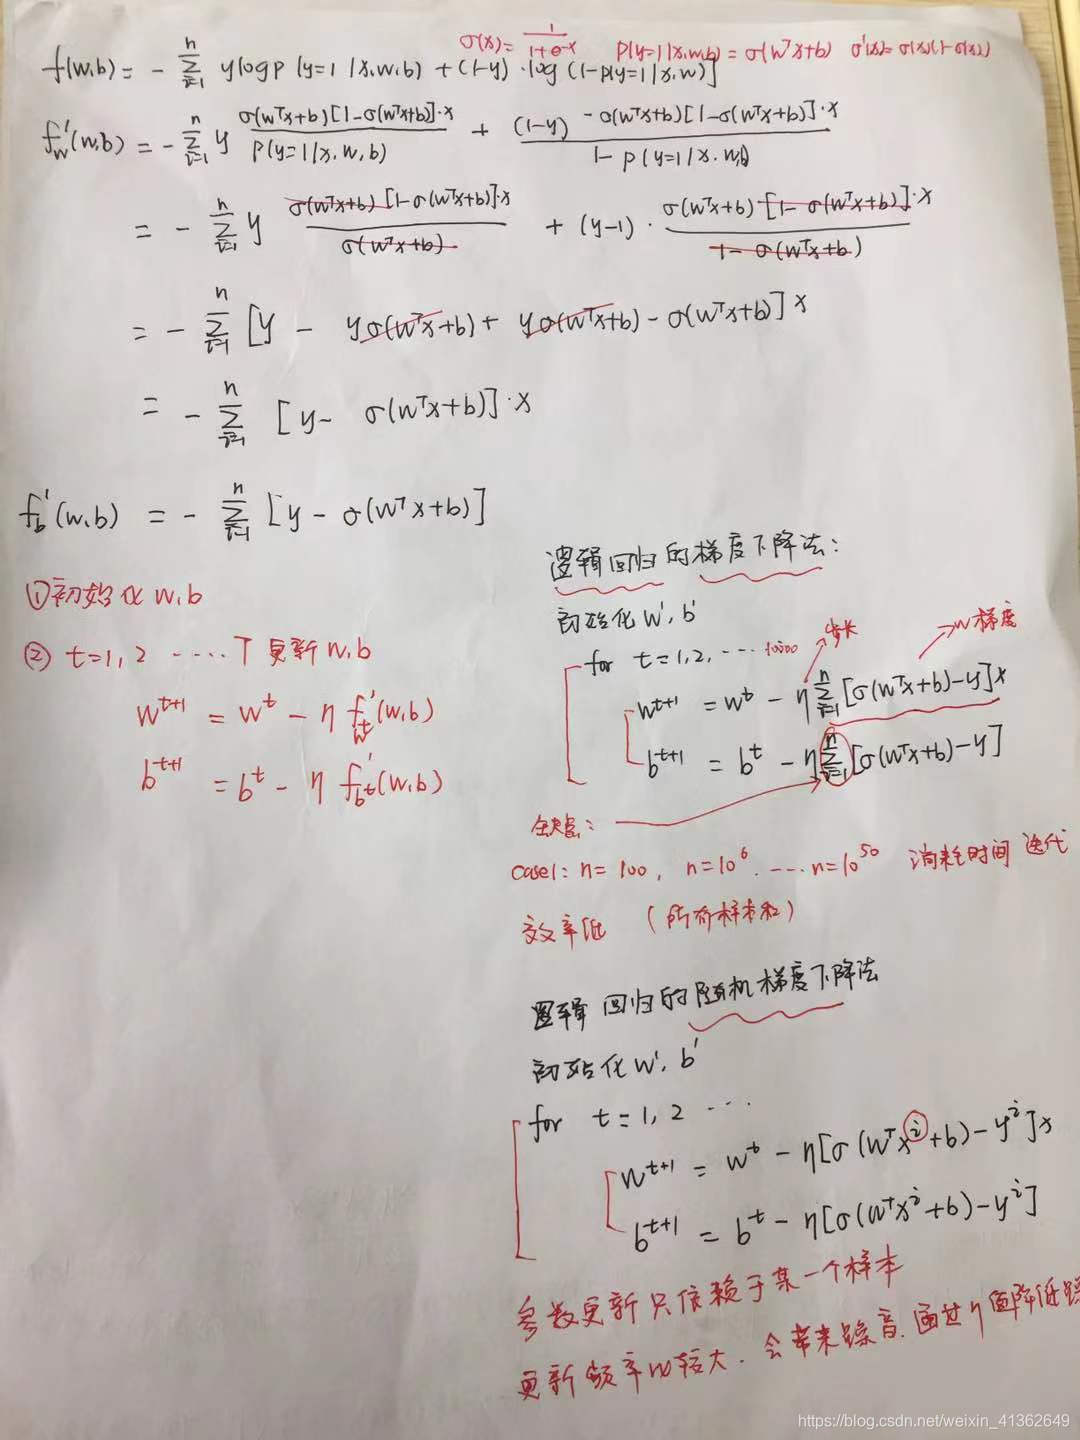 σ(x) = 1/(1+e^-x) p(y=1|x,w,b) = σ(w^T x+b) σ'(x) = σ(x)(1-σ(x))
f(w,b) = - Σ_{i=1}^n y log p (y=1 | x,w,b) + (1-y) · log (1-p(y=1|x,w)]
f'_w(w,b) = - Σ_{i=1}^n y σ(w^T x+b)[1-σ(w^T x+b)]·x / p(y=1|x,w,b) + (1-y) -σ(w^T x+b)[1-σ(w^T x+b)]·x / 1-p(y=1|x,w,b)
= - Σ_{i=1}^n y σ(w^T x+b)[1-σ(w^T x+b)]·x / σ(w^T x+b) + (y-1) · σ(w^T x+b)·[1-σ(w^T x+b)]·x / 1-σ(w^T x+b)
= - Σ_{i=1}^n [y - yσ(w^T x+b) + yσ(w^T x+b) - σ(w^T x+b)] x
= - Σ_{i=1}^n [y - σ(w^T x+b)]·x
f'_b(w,b) = - Σ_{i=1}^n [y - σ(w^T x+b)]
①初始化 w,b
② t=1,2 ····· T 更新 w,b
w^{t+1} = w^t - η f'_{w^t}(w,b)
b^{t+1} = b^t - η f'_{b^t}(w,b)
逻辑回归的梯度下降法:
初始化 w', b'
for t=1,2, ··· 10000 步长 w梯度
w^{t+1} = w^t - η Σ_{i=1}^n [σ(w^T x+b)-y]x
b^{t+1} = b^t - η Σ_{i=1}^n [σ(w^T x+b)-y]
case1: n=100, n=10^6. ···· n=10^50 消耗时间 迭代
效率低 (所有样本和)
逻辑回归的随机梯度下降法
初始化 w', b'
for t=1,2 ···
w^{t+1} = w^t - η[σ(w^T x^i+b)-y^i]x
b^{t+1} = b^t - η[σ(w^T x^i+b)-y^i]
参数更新只依赖于某一个样本
更新频率比较大. 会带来噪音. 通过η值降低
https://blog.csdn.net/weixin_41362649